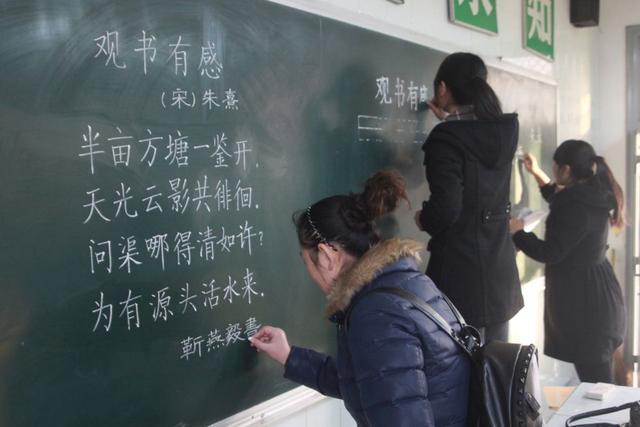 知
观书有感
(宋)朱熹
半亩方塘一鉴开.
天光云影共徘徊.
问渠哪得清如许?
为有源头活水来.
靳燕毅書
观书有